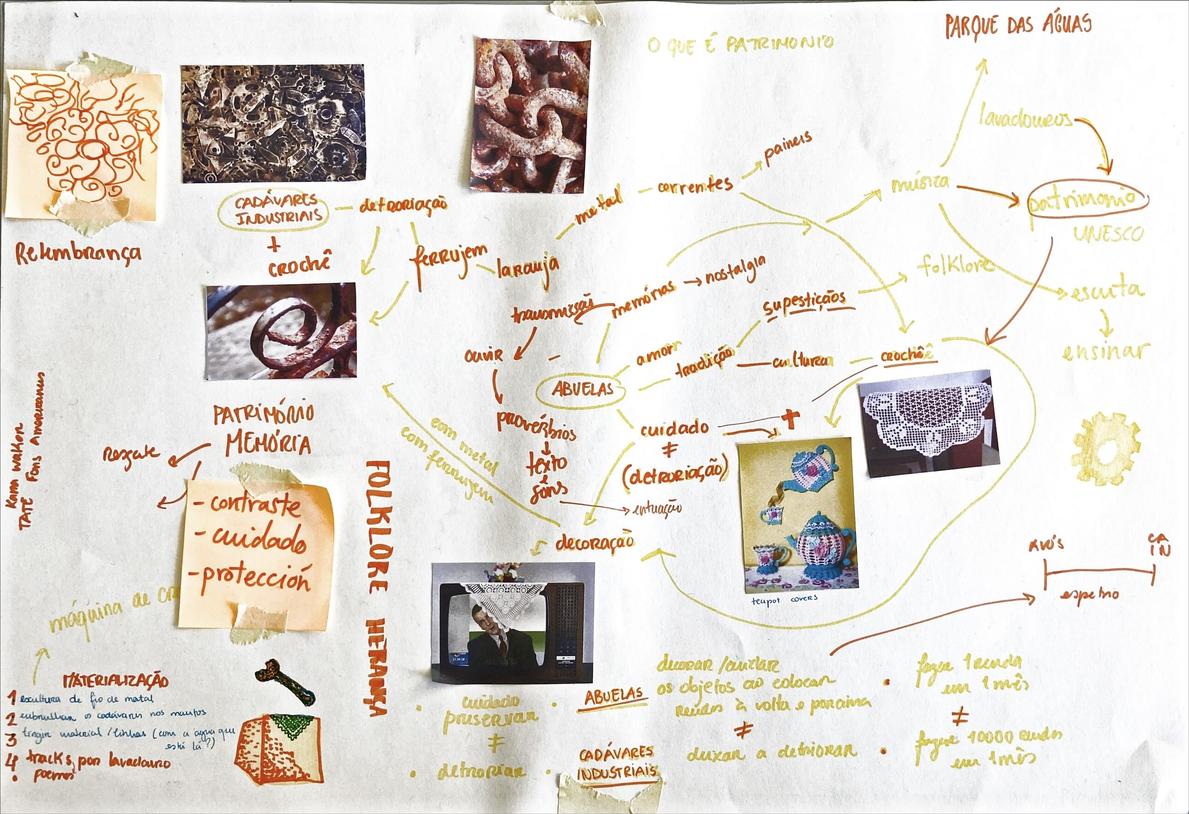 PARQUE DAS ÁGUAS
O QUE É PATRIMONIO
lavadouros
música
patrimonio
UNESCO
folklore
escuta
ensinar
paineis
correntes
metal
CADÁVERES
INDUSTRIAIS
detroriação
+
crochê
ferrujem
laranja
Relembrança
transmissão
memórias
nostalgia
supestiçãos
ouvir
amor
tradição
cultura
crochê
ABUELAS
provérbios
texto
sons
entuação
cuidado
+
≠
(detroriação)
com metal
com ferrujem
decoração
PATRIMÓNIO
MEMÓRIA
resgate
- contraste
- cuidado
- protección
TATE Fons Americanus
FOLKLORE HERANÇA
máquina de
teapot covers
AVÓS
espelho
MATERIALIZAÇÃO
1 escultura de fio de metal
2 embrulhar os cadáveres nos mantos
3 tingir material/linhas (com a água que
está lá?)
4 tracks por lavadouro
• poemas
• cuidado •
preservar
≠
• detroriar •
ABUELAS
CADÁVARES
INDUSTRIAIS
decorar/cuidar
os objetos ao colocar
rendas à volta e por cima
≠
deixar a detriorar
• fazer 1 renda
em 1 mês
≠
• fazer 10000 rendas
em 1 mês